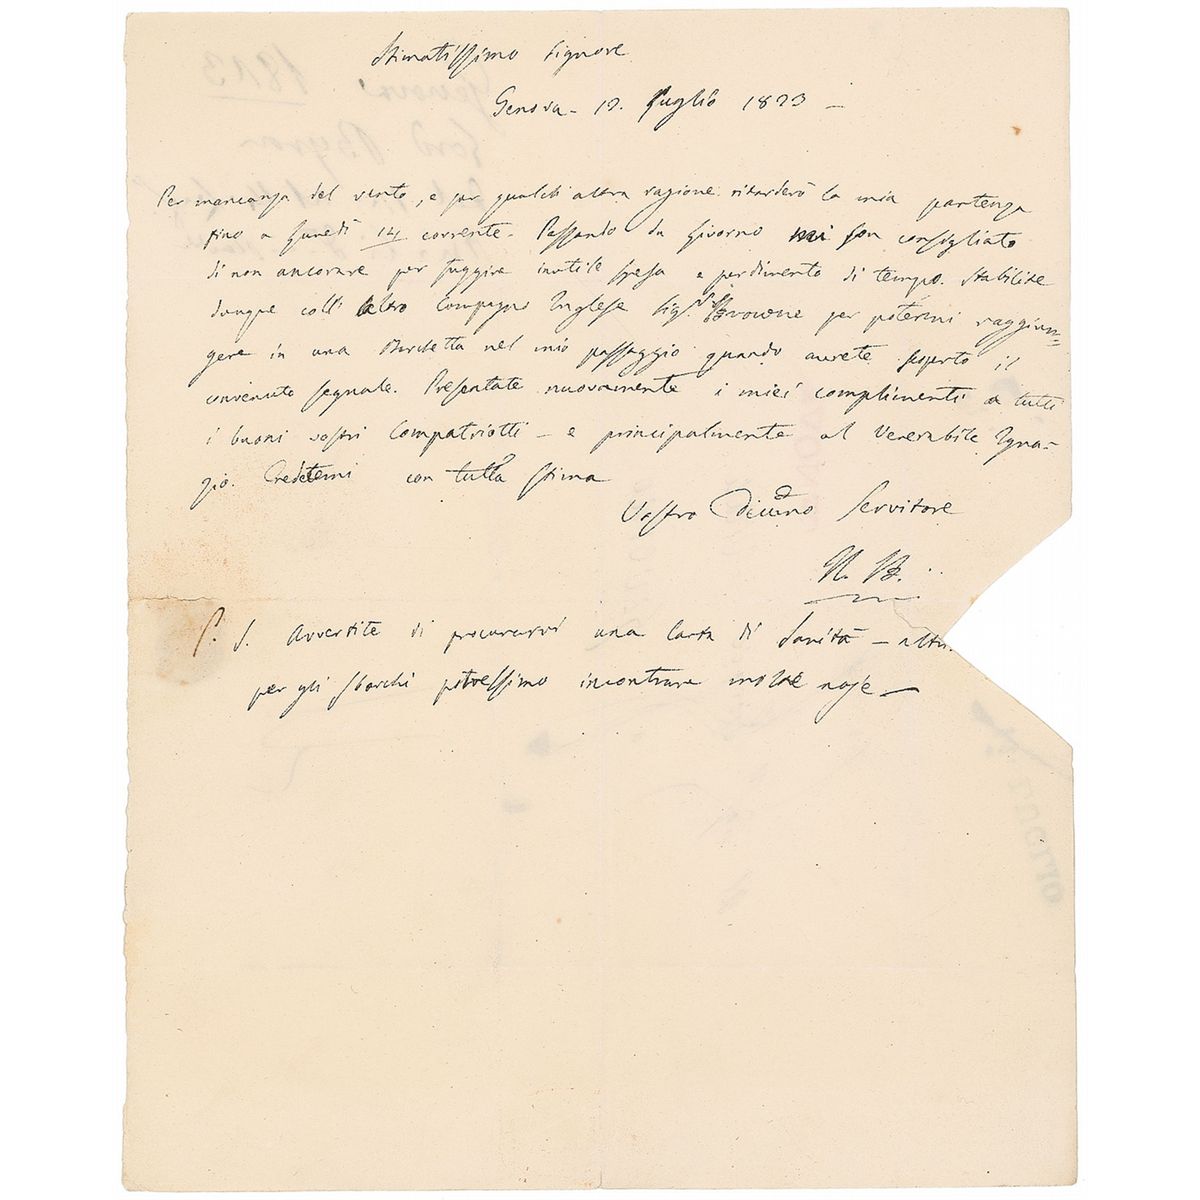 Stimatissimo Signore
Genova - 12. Luglio 1823 —
Per mancanza del vento, e per qualch' altra ragione ritarderò la mia partenza
fino a Lunedì 14 corrente. Passando da Livorno mi son consigliato
di non ancorare per fuggire inutile spesa e perdimento di tempo. Stabilite
dunque coll' altro Compagno Inglese Sig.r Browne per potermi raggiun=
gere in una Barchetta nel mio passaggio quando avrete scoperto il
convenuto segnale. Presentate nuovamente i miei complimenti a tutti
i buoni vostri Compatriotti — e principalmente al Venerabile Igna-
zio. Credetemi con tutta stima
Vostro Servitore
N. B.
P. S. Avvertite di procurarvi una Carta di Sanità —
per gli sbarchi potressimo incontrare molte noje —